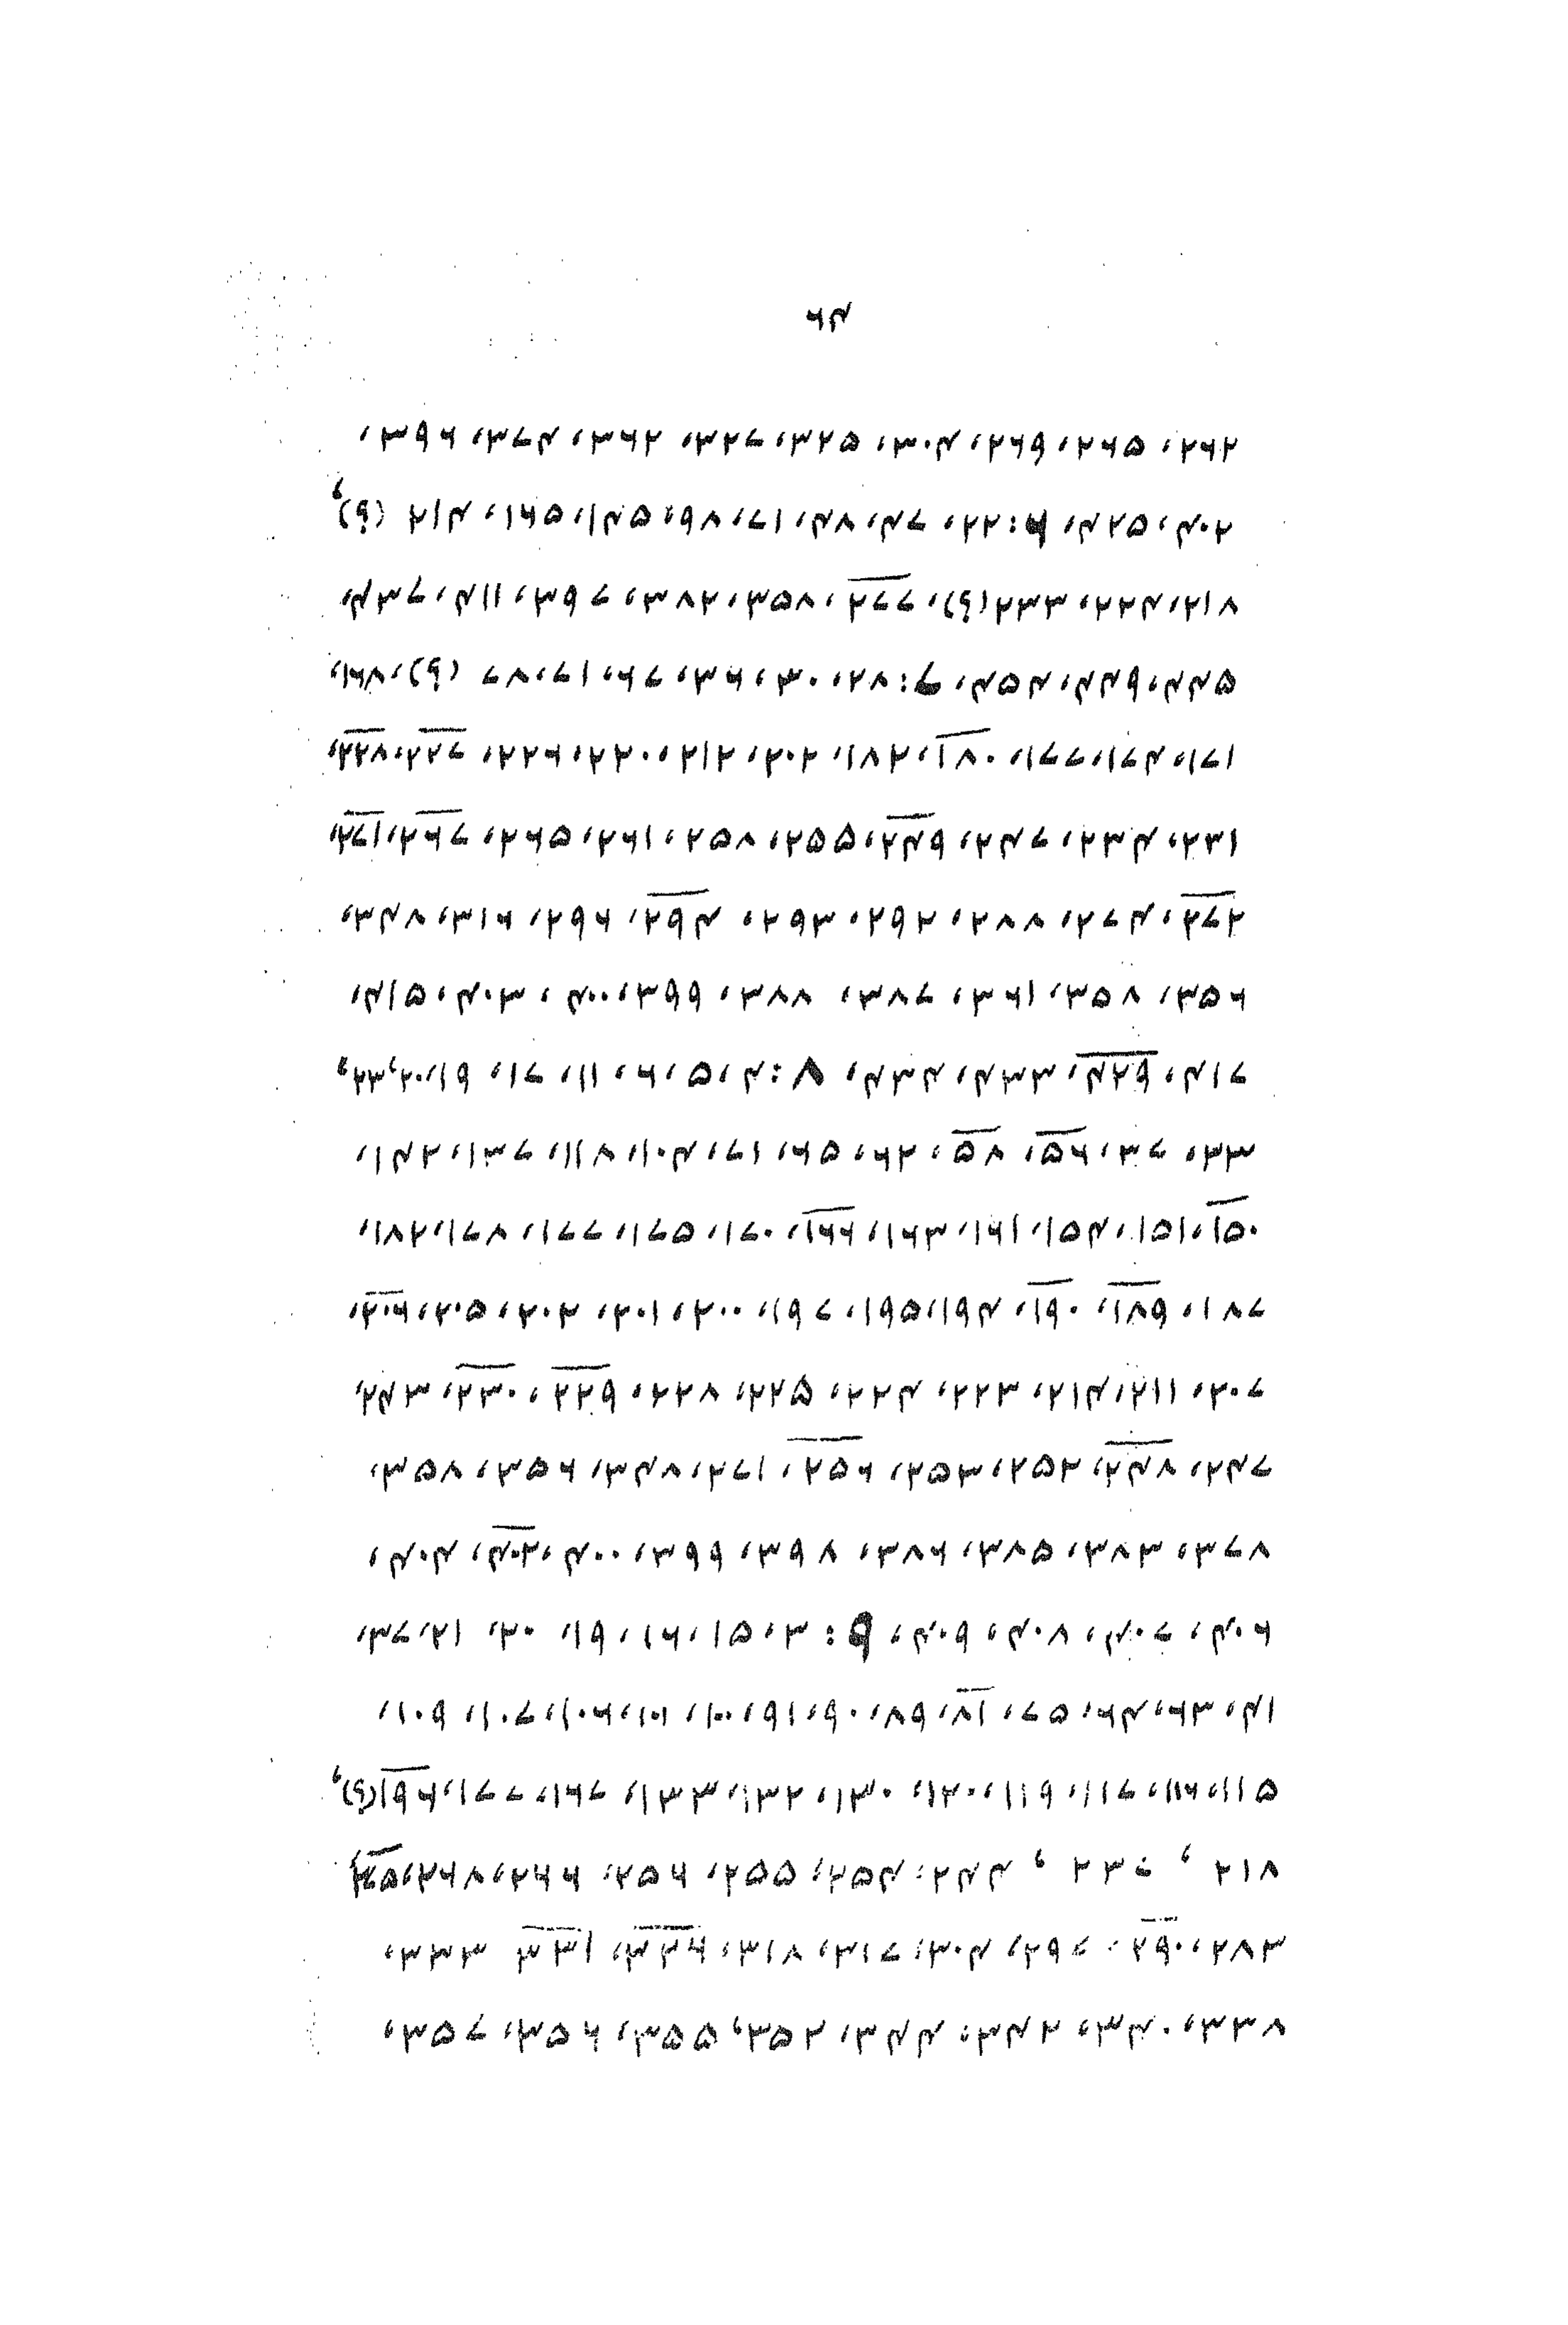 ۶۴
۲۶۲، ۲۶۵، ۲۶۹، ۳۰۴، ۳۲۵، ۳۲۷، ۳۶۲، ۳۷۴، ۳۹۶،
۴۰۲، ۴۲۵، ۶: ۲۲، ۴۷، ۴۸، ۷۱، ۸۹، ۱۴۵، ۱۶۵، ۲۱۴ (؟)،
۲۱۸، ۲۲۴، ۲۳۳(؟)، ۲۷۷، ۳۵۸، ۳۸۲، ۳۹۷، ۴۱۱، ۴۳۷،
۴۴۵، ۴۴۹، ۴۵۴، ۷: ۲۸، ۳۰، ۳۶، ۶۷، ۷۱، ۸۷ (؟)، ۱۶۸،
۱۷۱، ۱۷۴، ۱۷۷، ۱۸۰، ۱۸۲، ۲۰۲، ۲۱۲، ۲۲۰، ۲۲۶، ۲۲۷، ۲۲۸،
۲۳۱، ۲۳۴، ۲۴۷، ۲۴۹، ۲۵۵، ۲۵۸، ۲۶۱، ۲۶۵، ۲۶۷، ۲۷۱،
۲۷۲، ۲۷۴، ۲۸۸، ۲۹۲، ۲۹۳، ۲۹۴، ۲۹۶، ۳۱۶، ۳۴۸،
۳۵۶، ۳۵۸، ۳۶۱، ۳۸۷، ۳۸۸، ۳۹۹، ۴۰۰، ۴۰۳، ۴۱۵،
۴۱۷، ۴۲۹، ۴۳۳، ۴۳۴، ۸: ۴، ۵، ۶، ۱۱، ۱۷، ۱۹، ۲۰، ۲۳،
۳۳، ۳۷، ۵۶، ۵۸، ۶۲، ۶۵، ۷۱، ۱۰۴، ۱۱۸، ۱۳۷، ۱۴۲،
۱۵۰، ۱۵۱، ۱۵۴، ۱۶۱، ۱۶۳، ۱۶۶، ۱۷۰، ۱۷۵، ۱۷۷، ۱۷۸، ۱۸۲،
۱۸۷، ۱۸۹، ۱۹۰، ۱۹۴، ۱۹۵، ۱۹۷، ۲۰۰، ۲۰۱، ۲۰۲، ۲۰۵، ۲۰۶،
۲۰۷، ۲۱۱، ۲۱۴، ۲۲۳، ۲۲۴، ۲۲۵، ۲۲۸، ۲۲۹، ۲۳۰، ۲۴۳،
۲۴۷، ۲۴۸، ۲۵۲، ۲۵۳، ۲۵۶، ۲۷۱، ۳۴۸، ۳۵۶، ۳۵۸،
۳۷۸، ۳۸۳، ۳۸۵، ۳۸۶، ۳۹۸، ۳۹۹، ۴۰۰، ۴۰۲، ۴۰۴،
۴۰۶، ۴۰۷، ۴۰۸، ۴۰۹، ۹: ۳، ۱۵، ۱۶، ۱۹، ۲۰، ۲۱، ۳۷،
۴۱، ۶۳، ۶۴، ۷۵، ۸۱، ۸۹، ۹۰، ۹۱، ۱۰۰، ۱۰۱، ۱۰۶، ۱۰۷، ۱۰۹،
۱۱۵، ۱۱۶، ۱۱۷، ۱۱۹، ۱۲۰، ۱۳۰، ۱۳۲، ۱۳۳، ۱۶۷، ۱۷۷، ۱۹۶(؟)،
۲۱۸، ۲۳۰، ۲۴۴، ۲۵۴، ۲۵۵، ۲۵۶، ۲۶۶، ۲۶۸، ۲۷۵،
۲۸۳، ۲۹۰، ۲۹۷، ۳۰۴، ۳۱۷، ۳۱۸، ۳۲۶، ۳۳۱، ۳۳۳،
۳۳۸، ۳۴۰، ۳۴۲، ۳۴۴، ۳۵۲، ۳۵۵، ۳۵۶، ۳۵۷،